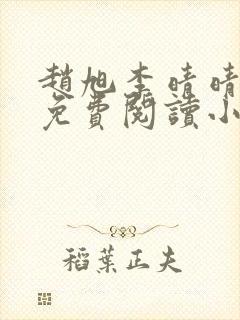 趙旭李晴晴
免費閱讀小
稻葉正夫